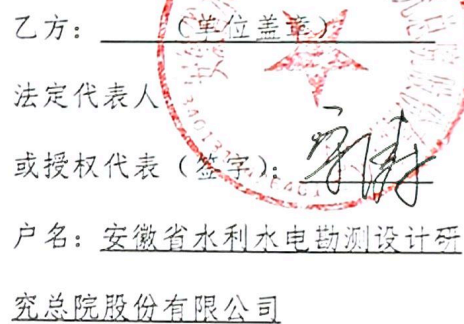 乙方：（单位盖章）
法定代表人
或授权代表（签字）：
户名：安徽省水利水电勘测设计研
究总院股份有限公司